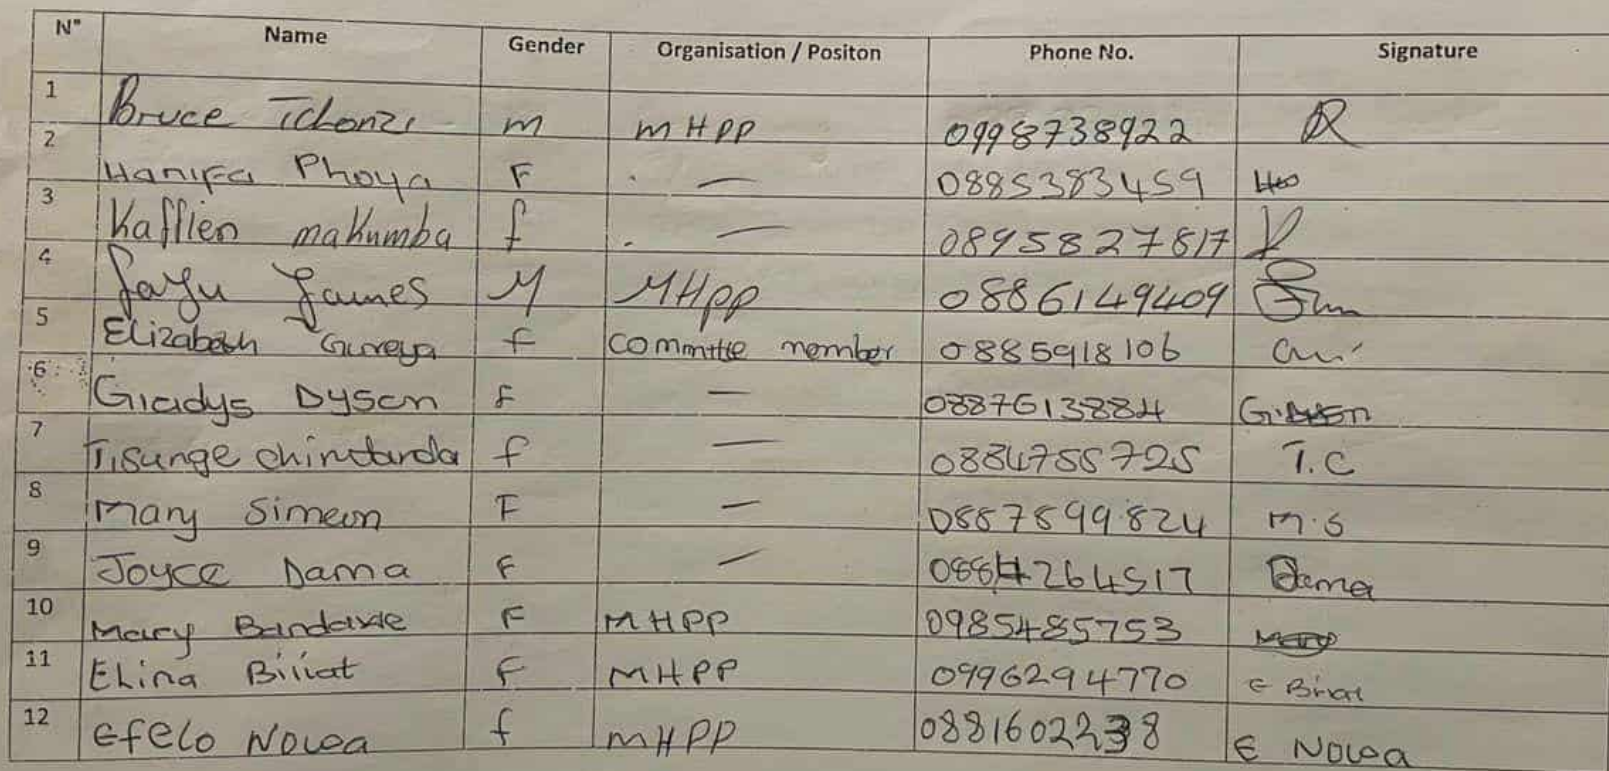 N° Name Gender Organisation / Positon Phone No. Signature
1 Bruce Tchonzi m MHPP 0998738922
2 Hanifa Phoya F . — 0885383459
3 Kafflien makumba f . — 0895827817
4 James M MHPP 0886149409
5 Elizabeth Gureya f committe member 0885918106
6 Gladys Dyson F — 0887613884
7 Tisunge f — 0884755725 T.C
8 Mary Simeon F — 0887899824 M.S
9 Joyce Dama F — 0884264517 Dama
10 Mary Bandawe F MHPP 0985485753 Mary
11 Elina Biliat F MHPP 0996294770
12 Efelo Nowa f MHPP 0881602238 E Nowa